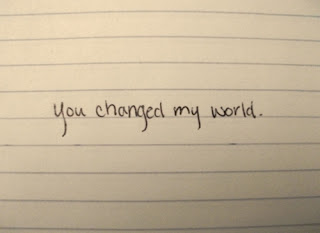 you changed my world.